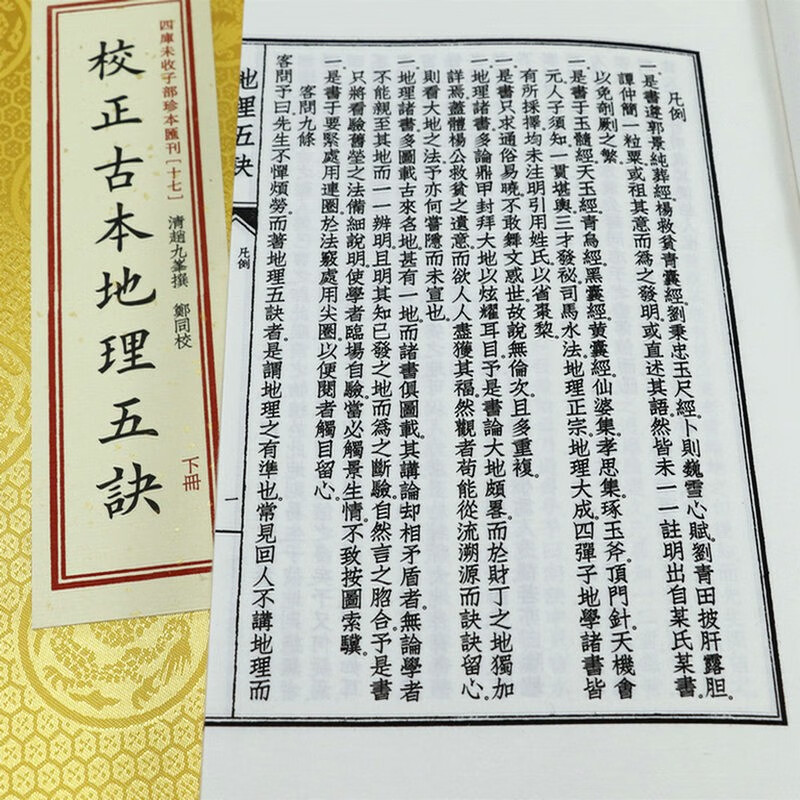 四庫未收子部珍本匯刊[十七]
校正古本地理五訣
清趙九峯撰　鄭同校
下冊
凡例
一是書遵郭景純葬經。楊救貧青囊經。劉秉忠玉尺經。卜則巍雪心賦。劉青田披肝露胆。
譚仲簡一粒粟。或祖其意而爲之發明。或直述其語。然皆未一一註明出自某氏某書。
以免剞劂之繁
一是書于玉髓經。天玉經。青烏經。黑囊經。黃囊經。仙婆集。孝思集。琢玉斧。頂門針。天機會
元。人子須知。一貫堪輿。三才發秘。司馬水法。地理正宗。地理大成。四彈子。地學諸書。皆
有所採擇。均未注明引用姓氏。以省棗黎。
一是書只求通俗易曉。不敢舞文惑世。故說無倫次。且多重複。
一地理諸書。多論鼎甲封拜大地。以炫耀耳目。予是書論大地頗畧。而於財丁之地。獨加
詳焉。蓋體楊公救貧之遺意。而欲人人盡獲其福。然觀者苟能從流溯源。而訣訣留心。
則看大地之法。予亦何嘗隱而未宣也。
一地理諸書。多圖載古來各地。甚有一地而諸書俱圖載。其講論却相矛盾者。無論學者
不能親至其地。而一一辨明。且明其知已發之地。而爲之斷驗。自然言之脗合。予是書
只將看驗舊塋之法。備細說明。使學者臨場自驗。當必觸景生情。不致按圖索驥。
一是書于要緊處用連圈。於法竅處用尖圈。以便閱者觸目留心。
客問九條
客問予曰。先生不憚煩勞。而著地理五訣者。是謂地理之有準也。常見回人不講地理而
地理五訣
凡例
一